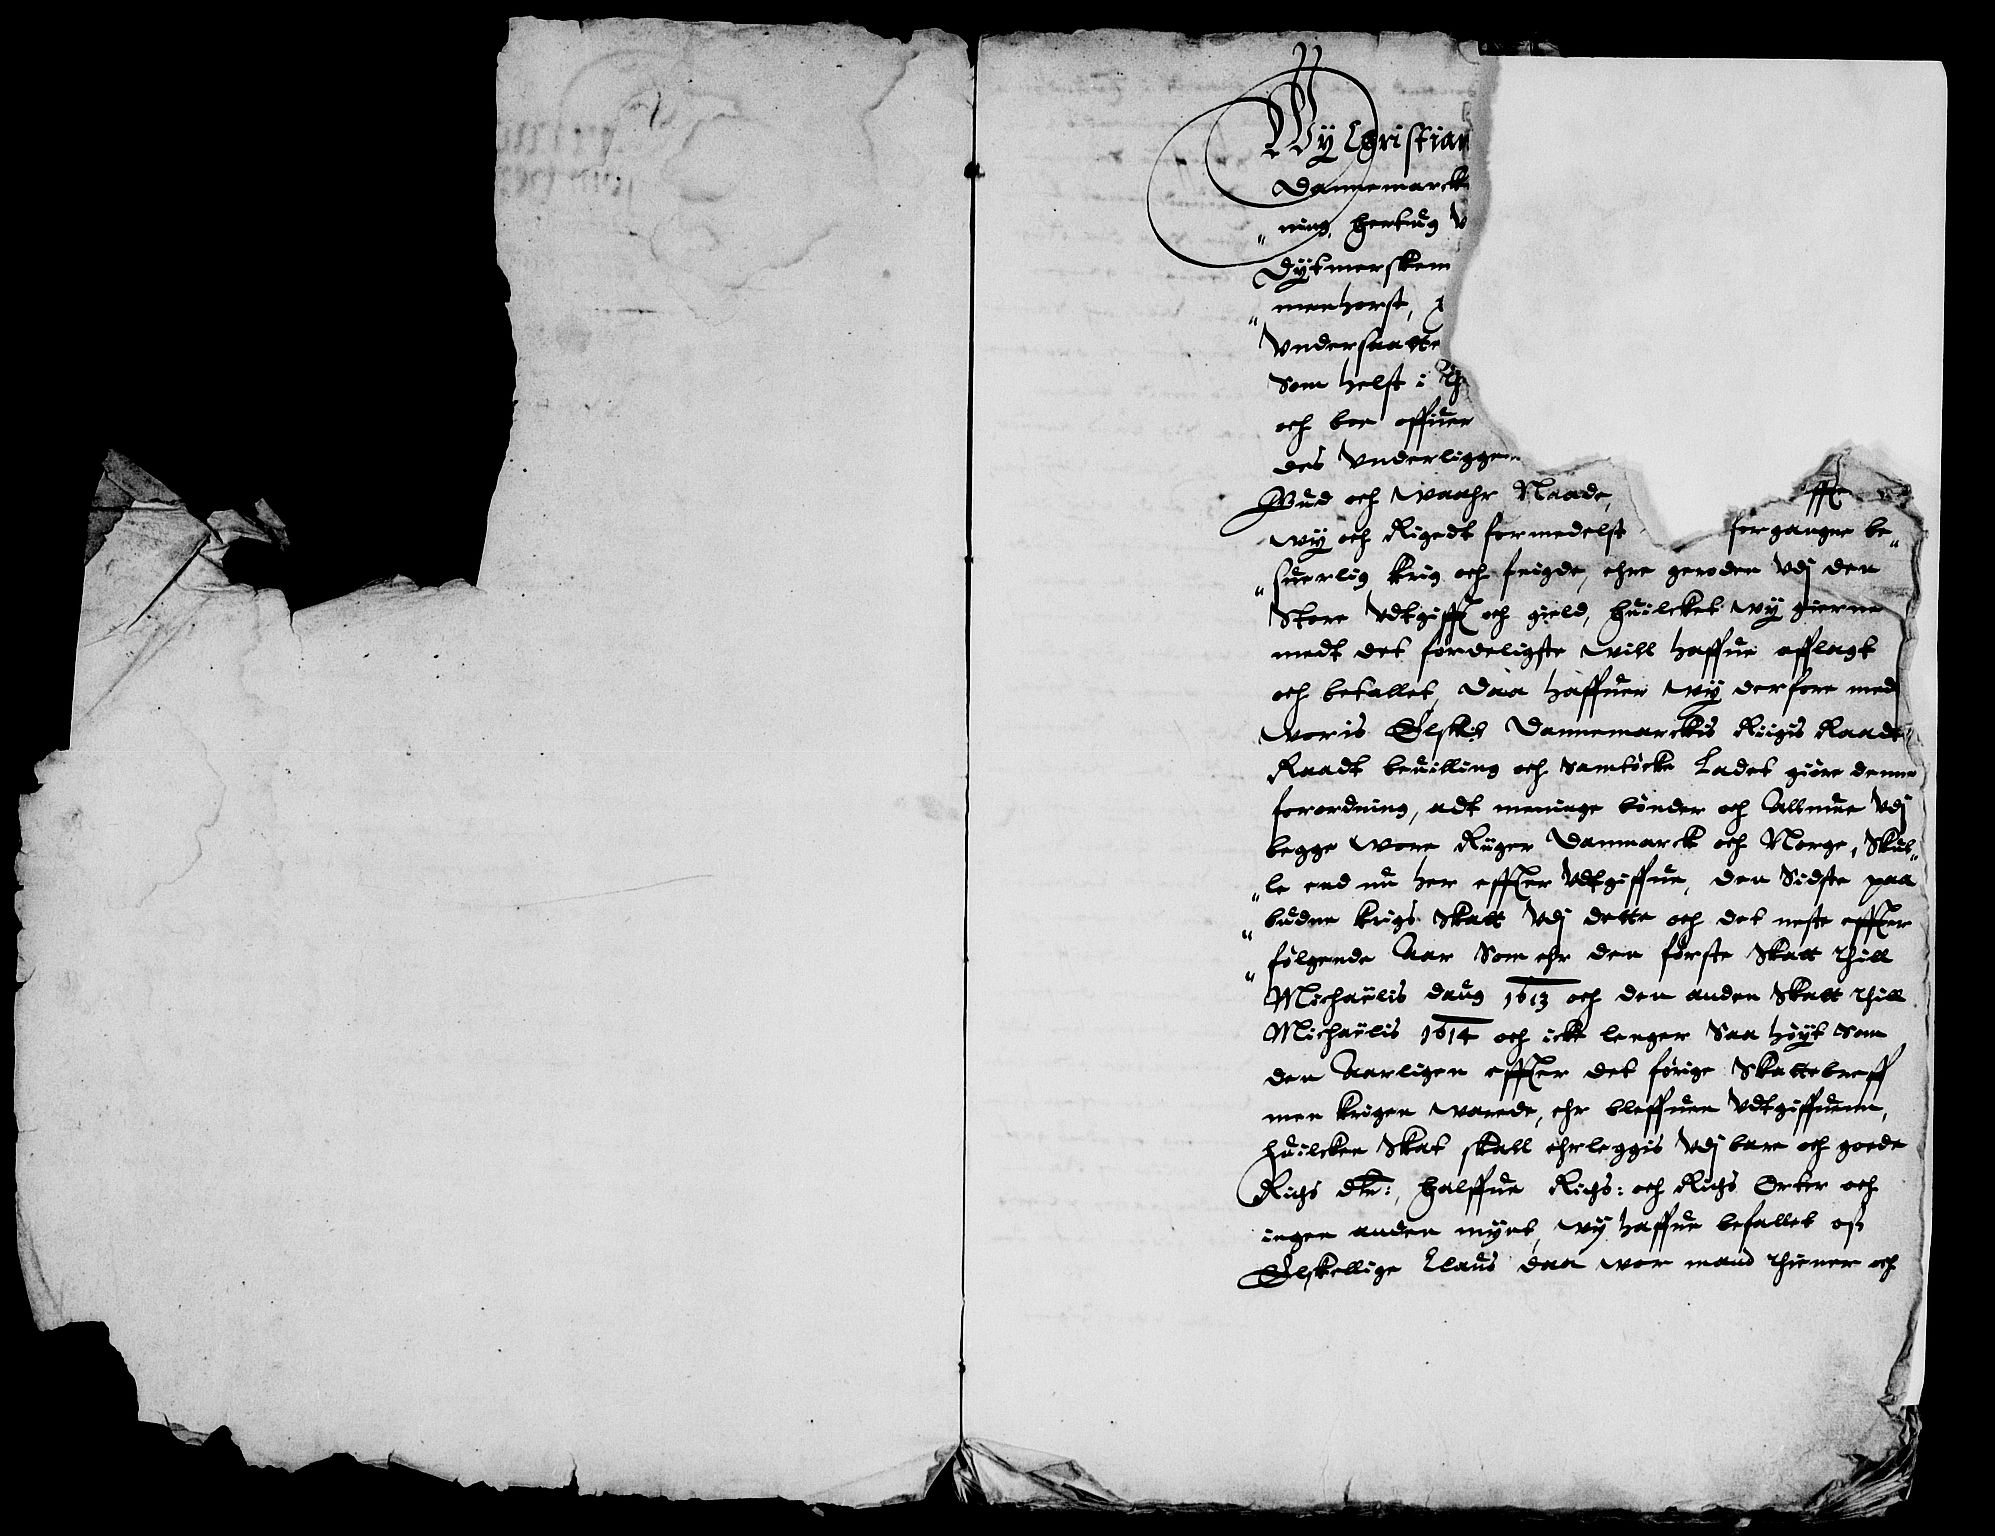 Wÿ Christian
Dannemarck
ning, Hertug
Dÿtmerskenn
menhorst,
Vndersaatte
Som helst i
och boe offuer
des Vnderliggen
Gud och waahr Naade,
wÿ och Rigedt formedelst forgangne be„
„suerlig krig och feigde, ehre geroden Vdj den
Store Vdtgifft och gield, huilcket wÿ gierne
medt det fordeligste will haffue afflagt
och betallet, daa haffuer wÿ derfore med
woris Elskelig Dannemarckis Riigis Raadt„
Raadt beuilling och Samtöcke Ladet giöre denne
forordning, adt meninge bönder och Allmue Vdj
begge wore Rÿger Danmarck och Norge, Skul„
„le end nu her effter Vdtgiffue, den Sidste paa
„budne krigs Skatt Vdj dette och det neste effter
„fölgende Aar Som ehr den förste Skatt thill
Michaëlis daug 1613 och den anden Skatt thill
Michaëlis 1614 och icke lenger Saa höÿt Som
den Aarligen effter det förige Skattebreff
men krigen warede, ehr bleffuen Vdtgiffuenn,
huilcken Skat skall ehrleggis Vdj bare och goede
Richs dlr:, halffue Richs: och Richs Orter och
ingen anden mÿnt, wÿ haffue befallet oß
Elskellige Claus daa wor mand thiener och